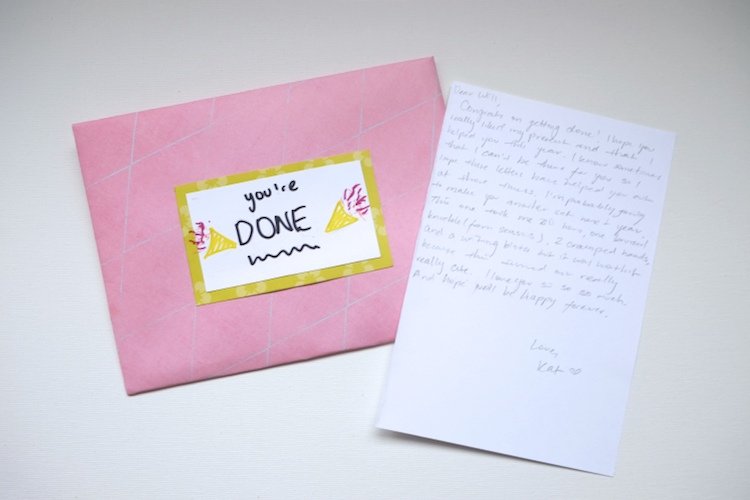 you're
DONE
Dear Will,
Congrats on getting done! I hope you
really liked my present and that I
helped you this year. I know sometimes
that I can't be there for you so I
hope these letters have helped you out
at those times. I'm probably going
to make you another set next year.
This one took me 20 hours, one
2 cramped hands,
and a writing but it was worth it
because this turned out really
cute. I love you so so so much
And hope we'll be happy forever.
Love,
Kat ♡